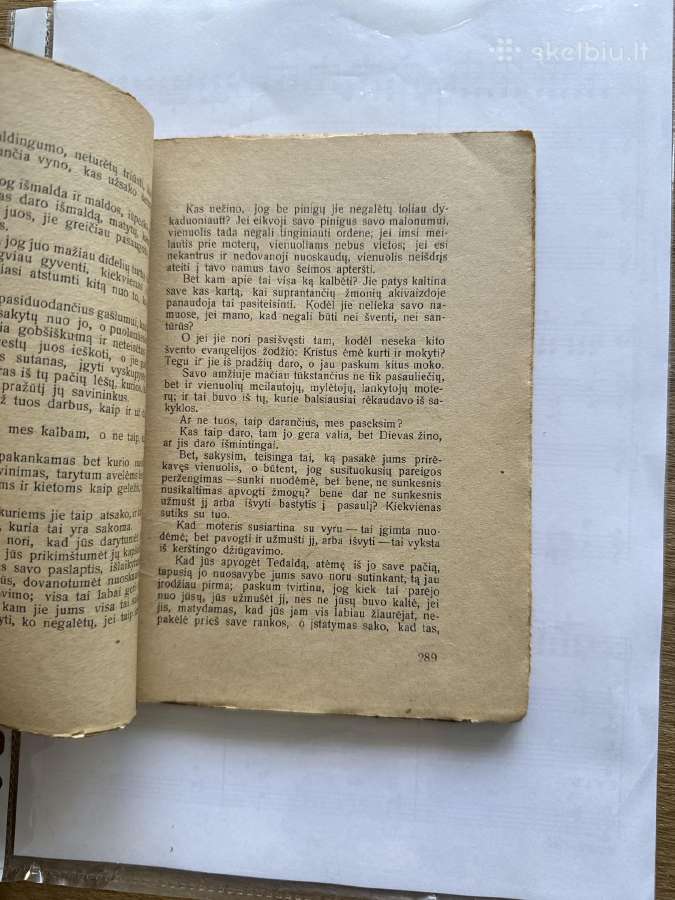 skelbiu.lt
aldingumo, neturėtų triūsti,
ančia vyno, kas užsako
jog išmalda ir maldos,
as daro išmaldą, matytų,
juos, jie greičiau pasaugo
, jog juo mažiau didelių turtų
gviau gyventi, kiekvienas
iasi atstumti kitą nuo to,
pasiduodančius gašlumui,
sakytų nuo jo, o puolamiems
ia gobšiškumą ir neteisėtą
vestų juos ieškoti, o jie galėtų
sutanas, įgyti vyskupijas
ras iš tų pačių lėšų, kurios
pražūtį jų savininkus.
ž tuos darbus, kaip ir už
mes kalbam, o ne taip,
pakankamas bet kurio
vinimas, tarytum avelėms
ms ir kietoms kaip geležis
kuriems jie taip atsako, ir
kuria tai yra sakoma.
nori, kad jūs darytumėt
jūs prikimštumėt jų
s savo paslaptis, išlaikytumėt
ūs, dovanotumėt nuoskaudas
vimo; visa tai labai gera
kam jie jums visa tai
yti, ko negalėtų, jei taip
Kas nežino, jog be pinigų jie negalėtų toliau dy-
kaduoniauti? Jei eikvoji savo pinigus savo malonumui,
vienuolis tada negali tinginiauti ordene; jei imsi mei-
lautis prie moterų, vienuoliams nebus vietos; jei esi
nekantrus ir nedovanoji nuoskaudų, vienuolis neišdrįs
ateiti į tavo namus tavo šeimos apteršti.
Bet kam apie tai visa ką kalbėti? Jie patys kaltina
save kas kartą, kai suprantančių žmonių akivaizdoje
panaudoja tai pasiteisinti. Kodėl jie nelieka savo na-
muose, jei mano, kad negali būti nei šventi, nei san-
tūrūs?
O jei jie nori pasišvęsti tam, kodėl neseka kito
švento evangelijos žodžio: Kristus ėmė kurti ir mokyti?
Tegu ir jie iš pradžių daro, o jau paskum kitus moko.
Savo amžiuje mačiau tūkstančius ne tik pasauliečių,
bet ir vienuolių meilautojų, mylėtojų, lankytojų mote-
rų; ir tai buvo iš tų, kurie balsiausiai rėkaudavo iš sa-
kyklos.
Ar ne tuos, taip darančius, mes paseksim?
Kas taip daro, tam jo gera valia, bet Dievas žino,
ar jis daro išmintingai.
Bet, sakysim, teisinga tai, ką pasakė jums prirė-
kavęs vienuolis, o būtent, jog susituokusių pareigos
peržengimas — sunki nuodėmė, bet bene, ne sunkesnis
nusikaltimas apvogti žmogų? bene dar ne sunkesnis
užmušt jį arba išvyti bastytis į pasaulį? Kiekvienas
sutiks su tuo.
Kad moteris susiartina su vyru — tai įgimta nuo-
dėmė; bet pavogti ir užmušti jį, arba išvyti — tai vyksta
iš kerštingo džiūgavimo.
Kad jūs apvogėt Tedaldą, atėmę iš jo save pačią,
tapusią jo nuosavybe jums savo noru sutinkant, tą jau
įrodžiau pirma; paskum tvirtinu, jog kiek tai parėjo
nuo jūsų, jūs užmušėt jį, nes ne jūsų buvo kaltė, jei
jis, matydamas, kad jūs jam vis labiau žiaurėjat, ne-
pakėlė prieš save rankos, o įstatymas sako, kad tas,
289